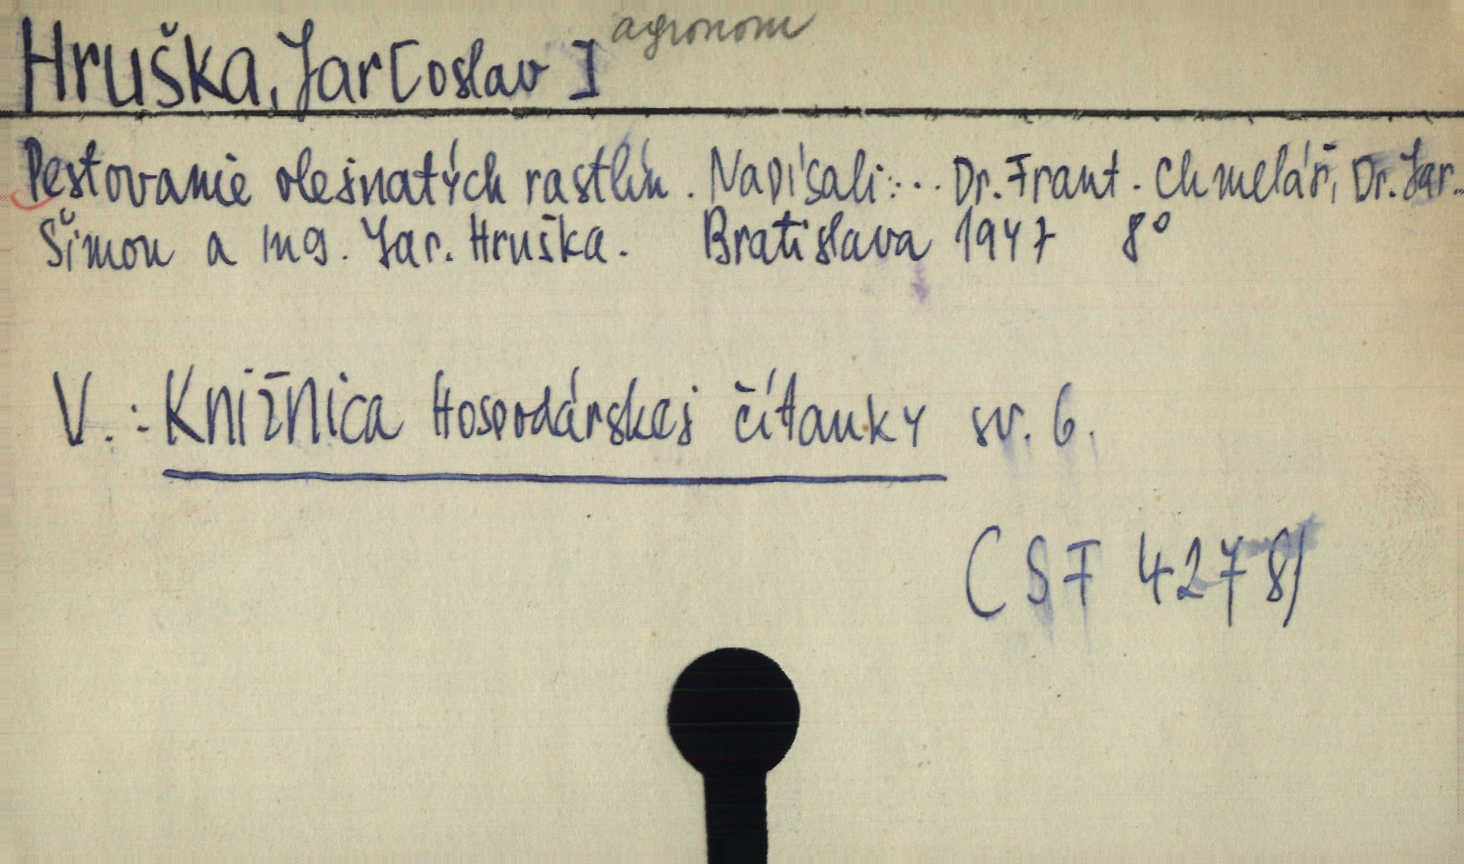 Hruška, Jar[oslav] agronom
Pestovanie olejnatých rastlín. Napísali: ... Dr. Frant. Chmelář, Dr. Jar.
Šimon a ing. Jar. Hruška. Bratislava 1947 8°
V.: Knižnica Hospodárskej čítanky sv. 6.
CSF 4278/